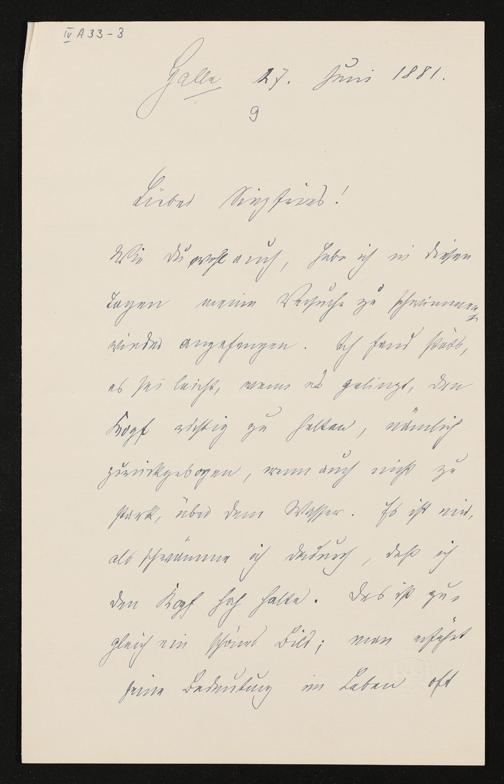 IV A 33-3
Halle 27. Juni 1881.
9
Lieber Siegfried!
Wie Du wohl auch, habe ich in diesen
Tagen meine Versuche zu schwimmen
wieder angefangen. Ich fand stets,
es sei leicht, wenn es gelingt, den
Kopf richtig zu halten, nämlich
zurückgebogen, wenn auch nicht zu
stark, über dem Wasser. Es ist mir,
als schwämme ich dadurch, daß ich
den Kopf hoch halte. Das ist zu-
gleich ein schönes Bild; man erfährt
seine Bedeutung im Leben oft